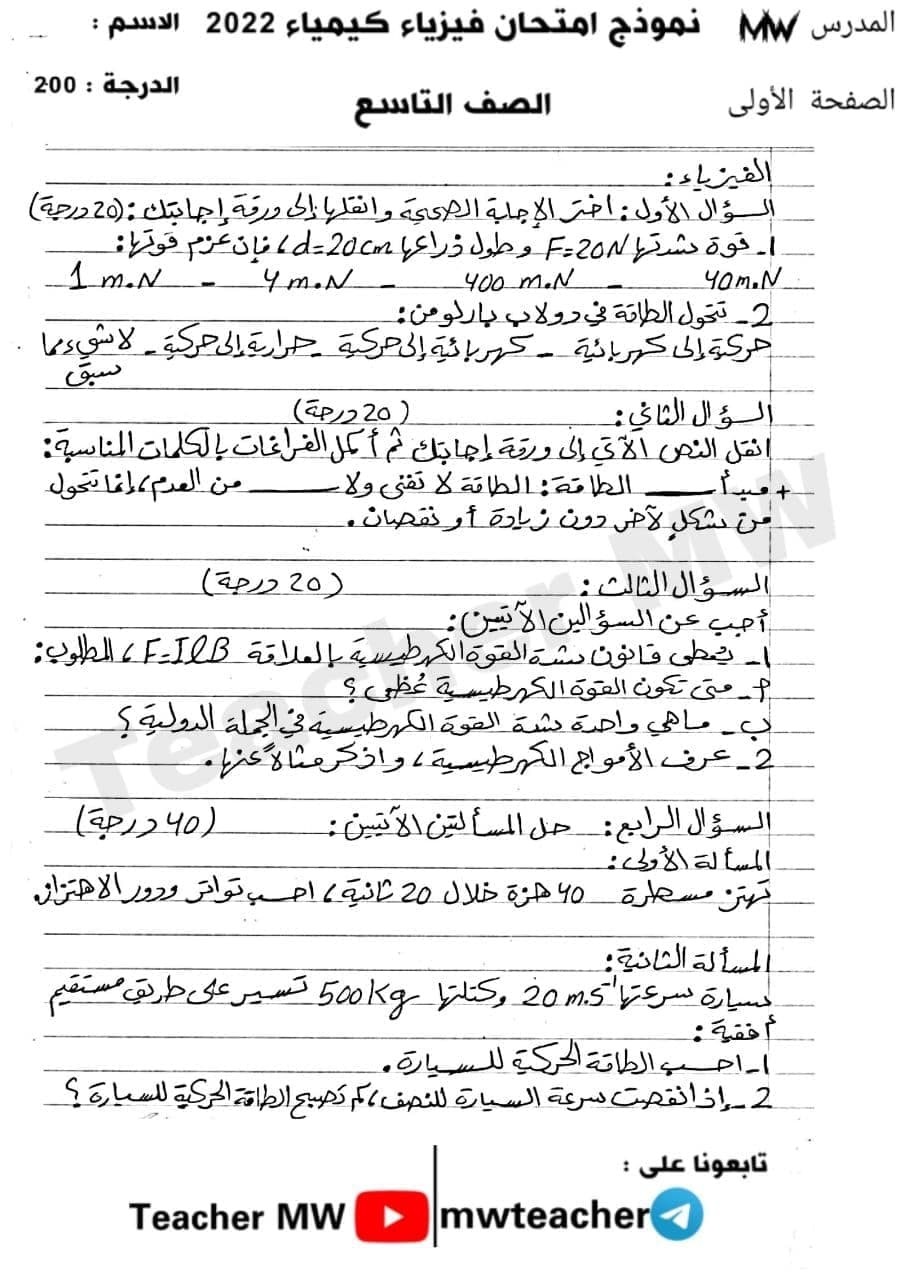 المدرس MW نموذج امتحان فيزياء كيمياء 2022 الاسم :
الصفحة الأولى الصف التاسع الدرجة : 200
الفيزياء:
السؤال الأول: اختر الإجابة الصحيحة وانقلها إلى ورقة إجابتك: (20 درجة)
1- قوة شدتها F=20N وطول ذراعها d=20cm، فإن عزم قوتها:
40 m.N - 400 m.N - 4 m.N - 1 m.N
2- تتحول الطاقة في دولاب بارلو من:
حركية إلى كهربائية - كهربائية إلى حركية - حرارية إلى حركية - لا شيء مما
سبق
السؤال الثاني: (20 درجة)
انقل النص الآتي إلى ورقة إجابتك ثم أكمل الفراغات بالكلمات المناسبة:
+ مبدأ ____ الطاقة: الطاقة لا تفنى ولا ____ من العدم، إنما تتحول
من شكلٍ لآخر دون زيادة أو نقصان.
السؤال الثالث: (20 درجة)
أجب عن السؤالين الآتيين:
1- يعطى قانون شدة القوة الكهرطيسية بالعلاقة F=IlB، المطلوب:
أ- متى تكون القوة الكهرطيسية عُظمى؟
ب- ماهي واحدة شدة القوة الكهرطيسية في الجملة الدولية؟
2- عرف الأمواج الكهرطيسية، واذكر مثالاً عنها.
السؤال الرابع: حل المسألتين الآتيتين: (40 درجة)
المسألة الأولى:
تهتز مسطرة 40 هزة خلال 20 ثانية، احسب تواتر ودور الاهتزاز.
المسألة الثانية:
سيارة سرعتها 20 m.s⁻¹ وكتلتها 500 kg تسير على طريق مستقيم
أفقية:
1- احسب الطاقة الحركية للسيارة.
2- إذا نقصت سرعة السيارة للنصف، كم تصبح الطاقة الحركية للسيارة؟
تابعونا على :
Teacher MW mwteacher
Teacher MW